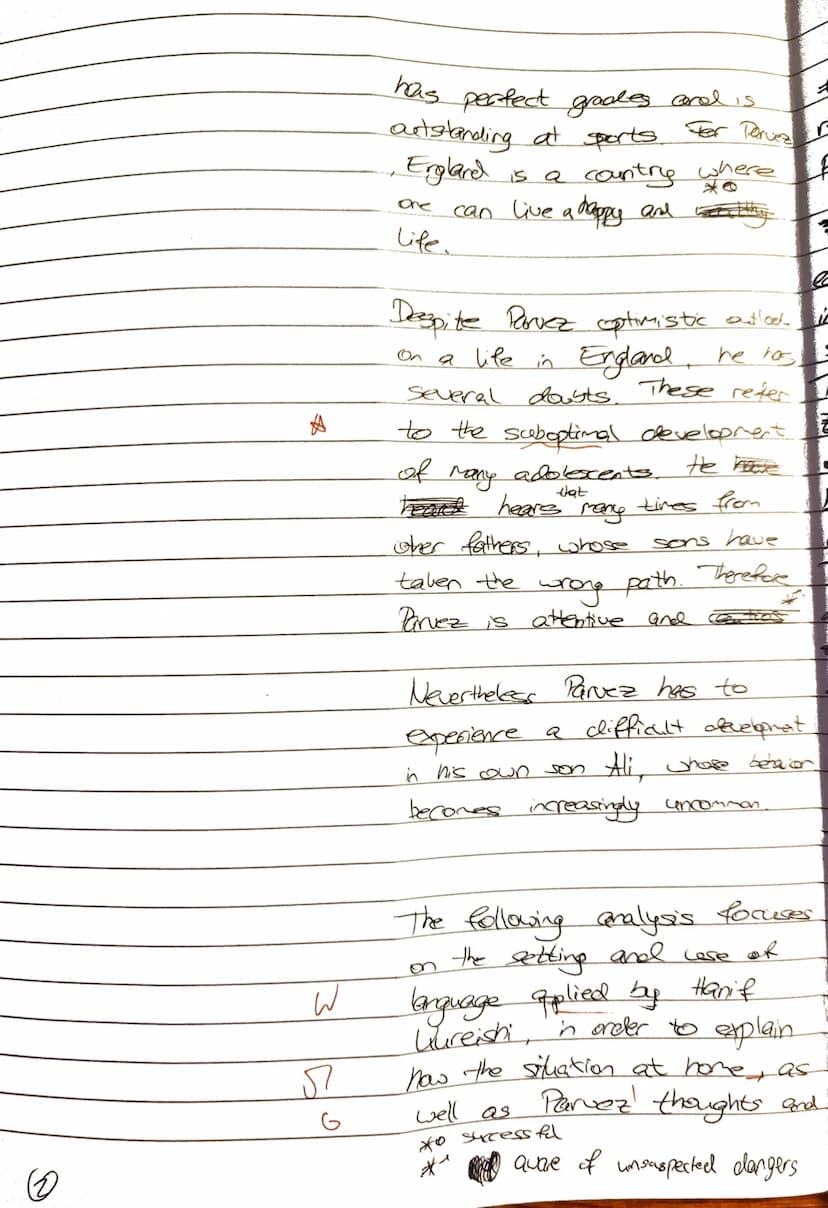 has perfect grades and is
outstanding at sports. For Parvez
, England is a country where
one can live a happy and *°
life.
Despite Parvez optimistic outlook
on a life in England, he has
several doubts. These refer
to the suboptimal development
of many adolescents. He
hears that many times from
other fathers, whose sons have
taken the wrong path. Therefore
Parvez is attentive and *¹
Nevertheless Parvez has to
experience a difficult development
in his own son Ali, whose behavior
becomes increasingly uncommon.
The following analysis focuses
on the setting and use of
W language applied by Hanif
Kureishi, in order to explain
how the situation at home, as
G well as Parvez' thoughts and
*° successful
*¹ aware of unsuspected dangers
2